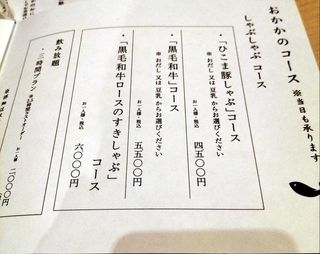 おかかのコース ※当日も承ります
しゃぶしゃぶ コース
・「ひこま豚しゃぶ」コース
※おだし又は豆乳からお選びください
お一人様・税込 四五〇〇円
・「黒毛和牛」コース
※おだし又は豆乳からお選びください
お一人様・税込 五五〇〇円
・「黒毛和牛ロースのすきしゃぶ」コース
お一人様・税込 六〇〇〇円
飲み放題
・三時間プラン
お一人様 二〇〇〇円